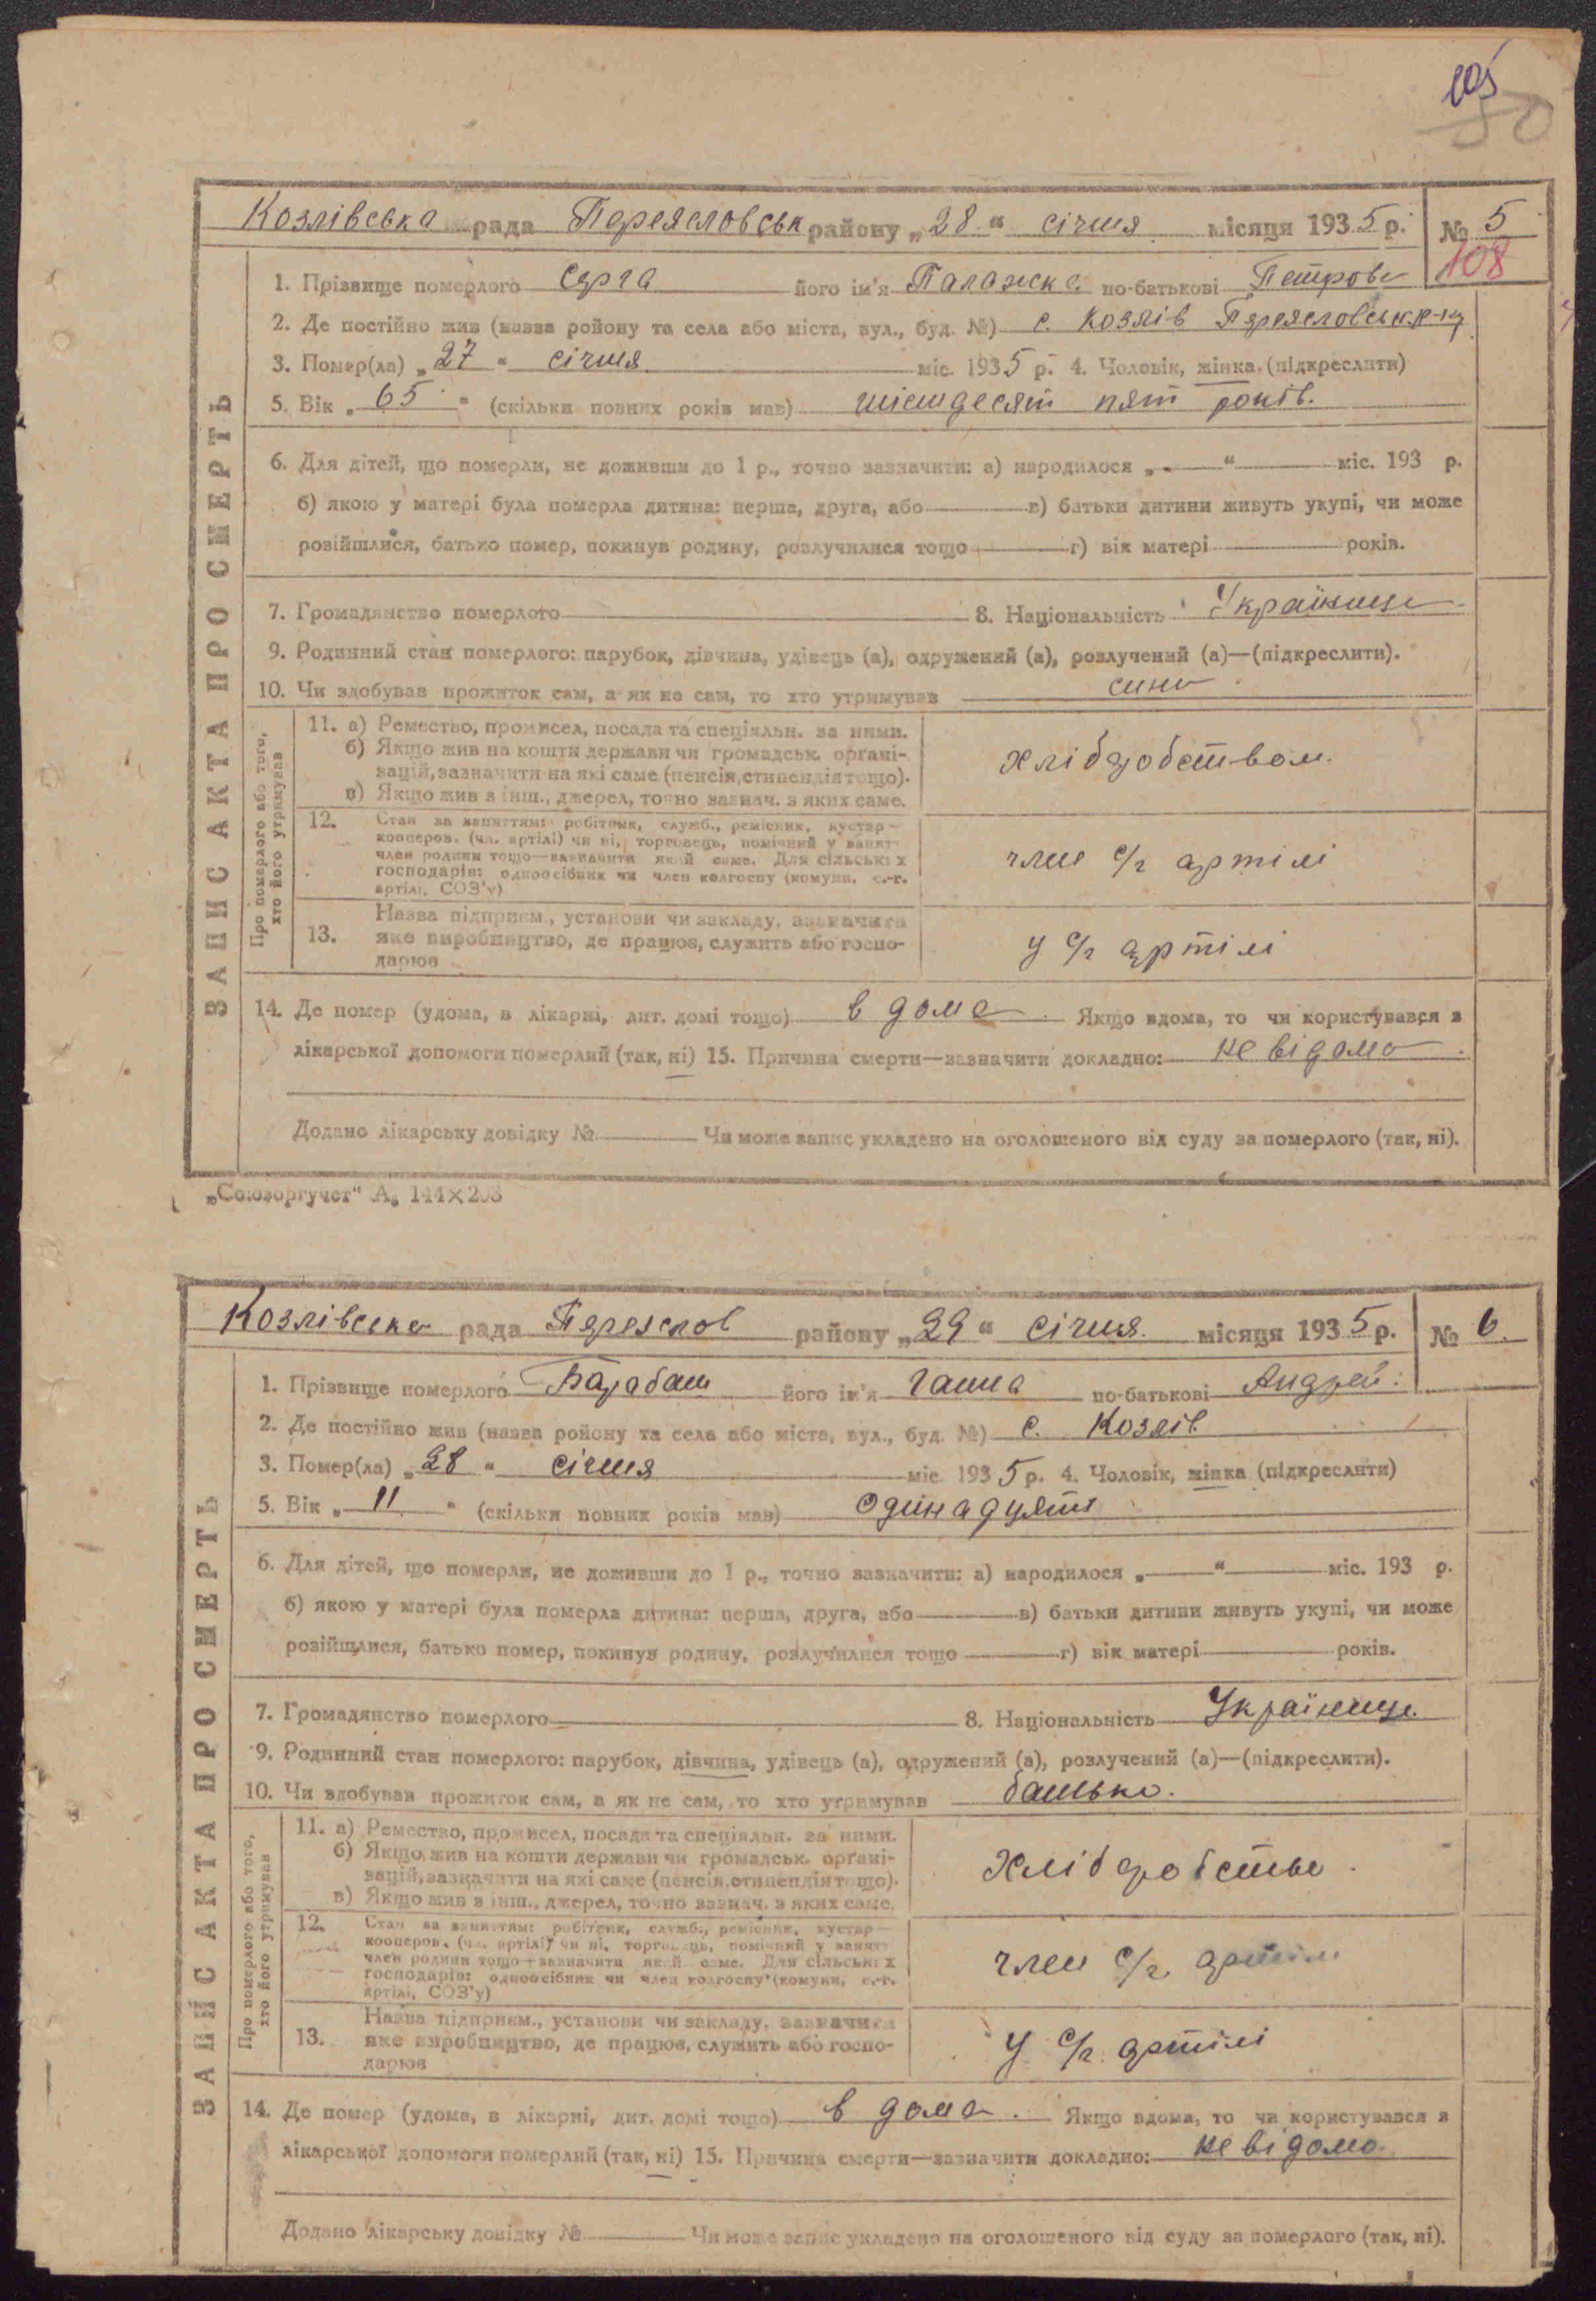 105
50
Козлівська рада Переясловськ району „28“ січня місяця 1935 р. № 5
108
1. Прізвище померлого Сярга його ім'я Палажка по-батькові Петров
2. Де постійно жив (назва ройону та села або міста, вул., буд. №) с. Козлів Переясловськ. р-ну
3. Помер(ла) „27“ січня міс. 1935 р. 4. Чоловік, жінка (підкреслити)
5. Вік „65“ (скільки повних років мав) шістдесят пят років.
6. Для дітей, що померли, не доживши до 1 р., точно зазначити: а) народилося „ “ міс. 193 р.
б) якою у матері була померла дитина: перша, друга, або в) батьки дитини живуть укупі, чи може
розійшлися, батько помер, покинув родину, розлучилися тощо г) вік матері років.
7. Громадянство померлого 8. Національність Українка
9. Родинний стан померлого: парубок, дівчина, удівець (а), одружений (а), розлучений (а)—(підкреслити).
10. Чи здобував прожиток сам, а як не сам, то хто утримував сини
ЗАПИС АКТА ПРО СМЕРТЬ
Про померлого або того,
хто його утримував
11. а) Ремество, промисел, посада та спеціяльн. за ними.
б) Якщо жив на кошти держави чи громадськ. органі-
зацій, зазначити на які саме (пенсія, стипендія тощо).
в) Якщо жив з інш., джерел, точно зазнач. з яких саме.
хліборобством.
12. Стан за заняттям: робітник, служб., ремісник, кустар—
кооперов. (чл. артілі) чи ні, торговець, помічний у занят
член родини тощо—зазначити який саме. Для сільських
господарів: одноосібник чи член колгоспу (комуни, с.-г.
артілі, СОЗ'у)
член с/г артілі
13. Назва підприєм., установи чи закладу, зазначити
яке виробництво, де працює, служить або госпо-
дарює
у с/г артілі
14. Де помер (удома, в лікарні, дит. домі тощо) в дома. Якщо вдома, то чи користувався з
лікарської допомоги померлий (так, ні) 15. Причина смерти—зазначити докладно: не відомо.
Додано лікарську довідку № Чи може запис укладено на оголошеного від суду за померлого (так, ні).
„Союзоргучет“ А₅ 144×203
Козлівська рада Переяслов району „29“ січня місяця 1935 р. № 6.
1. Прізвище померлого Барабаш його ім'я Ганна по-батькові Андрей.
2. Де постійно жив (назва ройону та села або міста, вул., буд. №) с. Козлів
3. Помер(ла) „28“ січня міс. 1935 р. 4. Чоловік, жінка (підкреслити)
5. Вік „11“ (скільки повних років мав) одинадцять
6. Для дітей, що померли, не доживши до 1 р., точно зазначити: а) народилося „ “ міс. 193 р.
б) якою у матері була померла дитина: перша, друга, або в) батьки дитини живуть укупі, чи може
розійшлися, батько помер, покинув родину, розлучилися тощо г) вік матері років.
7. Громадянство померлого 8. Національність Українка
9. Родинний стан померлого: парубок, дівчина, удівець (а), одружений (а), розлучений (а)—(підкреслити).
10. Чи здобував прожиток сам, а як не сам, то хто утримував батько.
ЗАПИС АКТА ПРО СМЕРТЬ
Про померлого або того,
хто його утримував
11. а) Ремество, промисел, посада та спеціяльн. за ними.
б) Якщо жив на кошти держави чи громадськ. органі-
зацій, зазначити на які саме (пенсія, стипендія тощо).
в) Якщо жив з інш., джерел, точно зазнач. з яких саме.
Хліборобство.
12. Стан за заняттям: робітник, служб., ремісник, кустар—
кооперов. (чл. артілі) чи ні, торговець, помічний у занят
член родини тощо—зазначити який саме. Для сільських
господарів: одноосібник чи член колгоспу (комуни, с.-г.
артілі, СОЗ'у)
член с/г артіли
13. Назва підприєм., установи чи закладу, зазначити
яке виробництво, де працює, служить або госпо-
дарює
у с/г. артілі
14. Де помер (удома, в лікарні, дит. домі тощо) в дома. Якщо вдома, то чи користувався з
лікарської допомоги померлий (так, ні) 15. Причина смерти—зазначити докладно: не відомо.
Додано лікарську довідку № Чи може запис укладено на оголошеного від суду за померлого (так, ні).